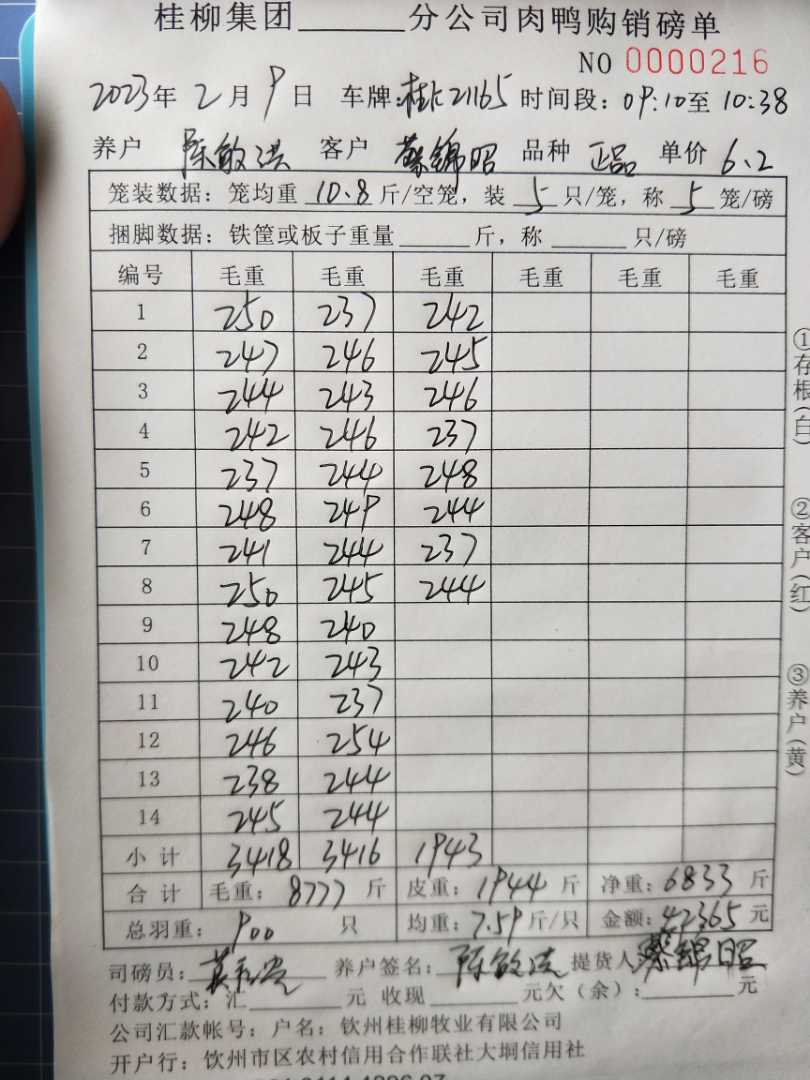 桂柳集团______分公司肉鸭购销磅单
NO 0000216
2023年 2月 9日 车牌:桂K21165 时间段:09:10至 10:38
养户 陈敏洪 客户 蔡锦昭 品种 正品 单价 6.2
笼装数据:笼均重 10.8 斤/空笼,装 5 只/笼,称 5 笼/磅
捆脚数据:铁筐或板子重量______斤,称______只/磅
编号 毛重 毛重 毛重 毛重 毛重 毛重
1 250 237 242
2 247 246 245
3 244 243 246
4 242 246 237
5 237 244 248
6 248 249 244
7 241 244 237
8 250 245 244
9 248 240
10 242 243
11 240 237
12 246 254
13 238 244
14 245 244
小计 3418 3416 1943
合计 毛重:8777 斤 皮重:1944 斤 净重:6833 斤
总羽重:900 只 均重:7.59斤/只 金额:42365元
司磅员: 养户签名:陈敏洪 提货人 蔡锦昭
付款方式:汇______元 收现______元欠(余):______元
公司汇款帐号:户名:钦州桂柳牧业有限公司
开户行:钦州市区农村信用合作联社大垌信用社
①存根(白) ②客户(红) ③养户(黄)